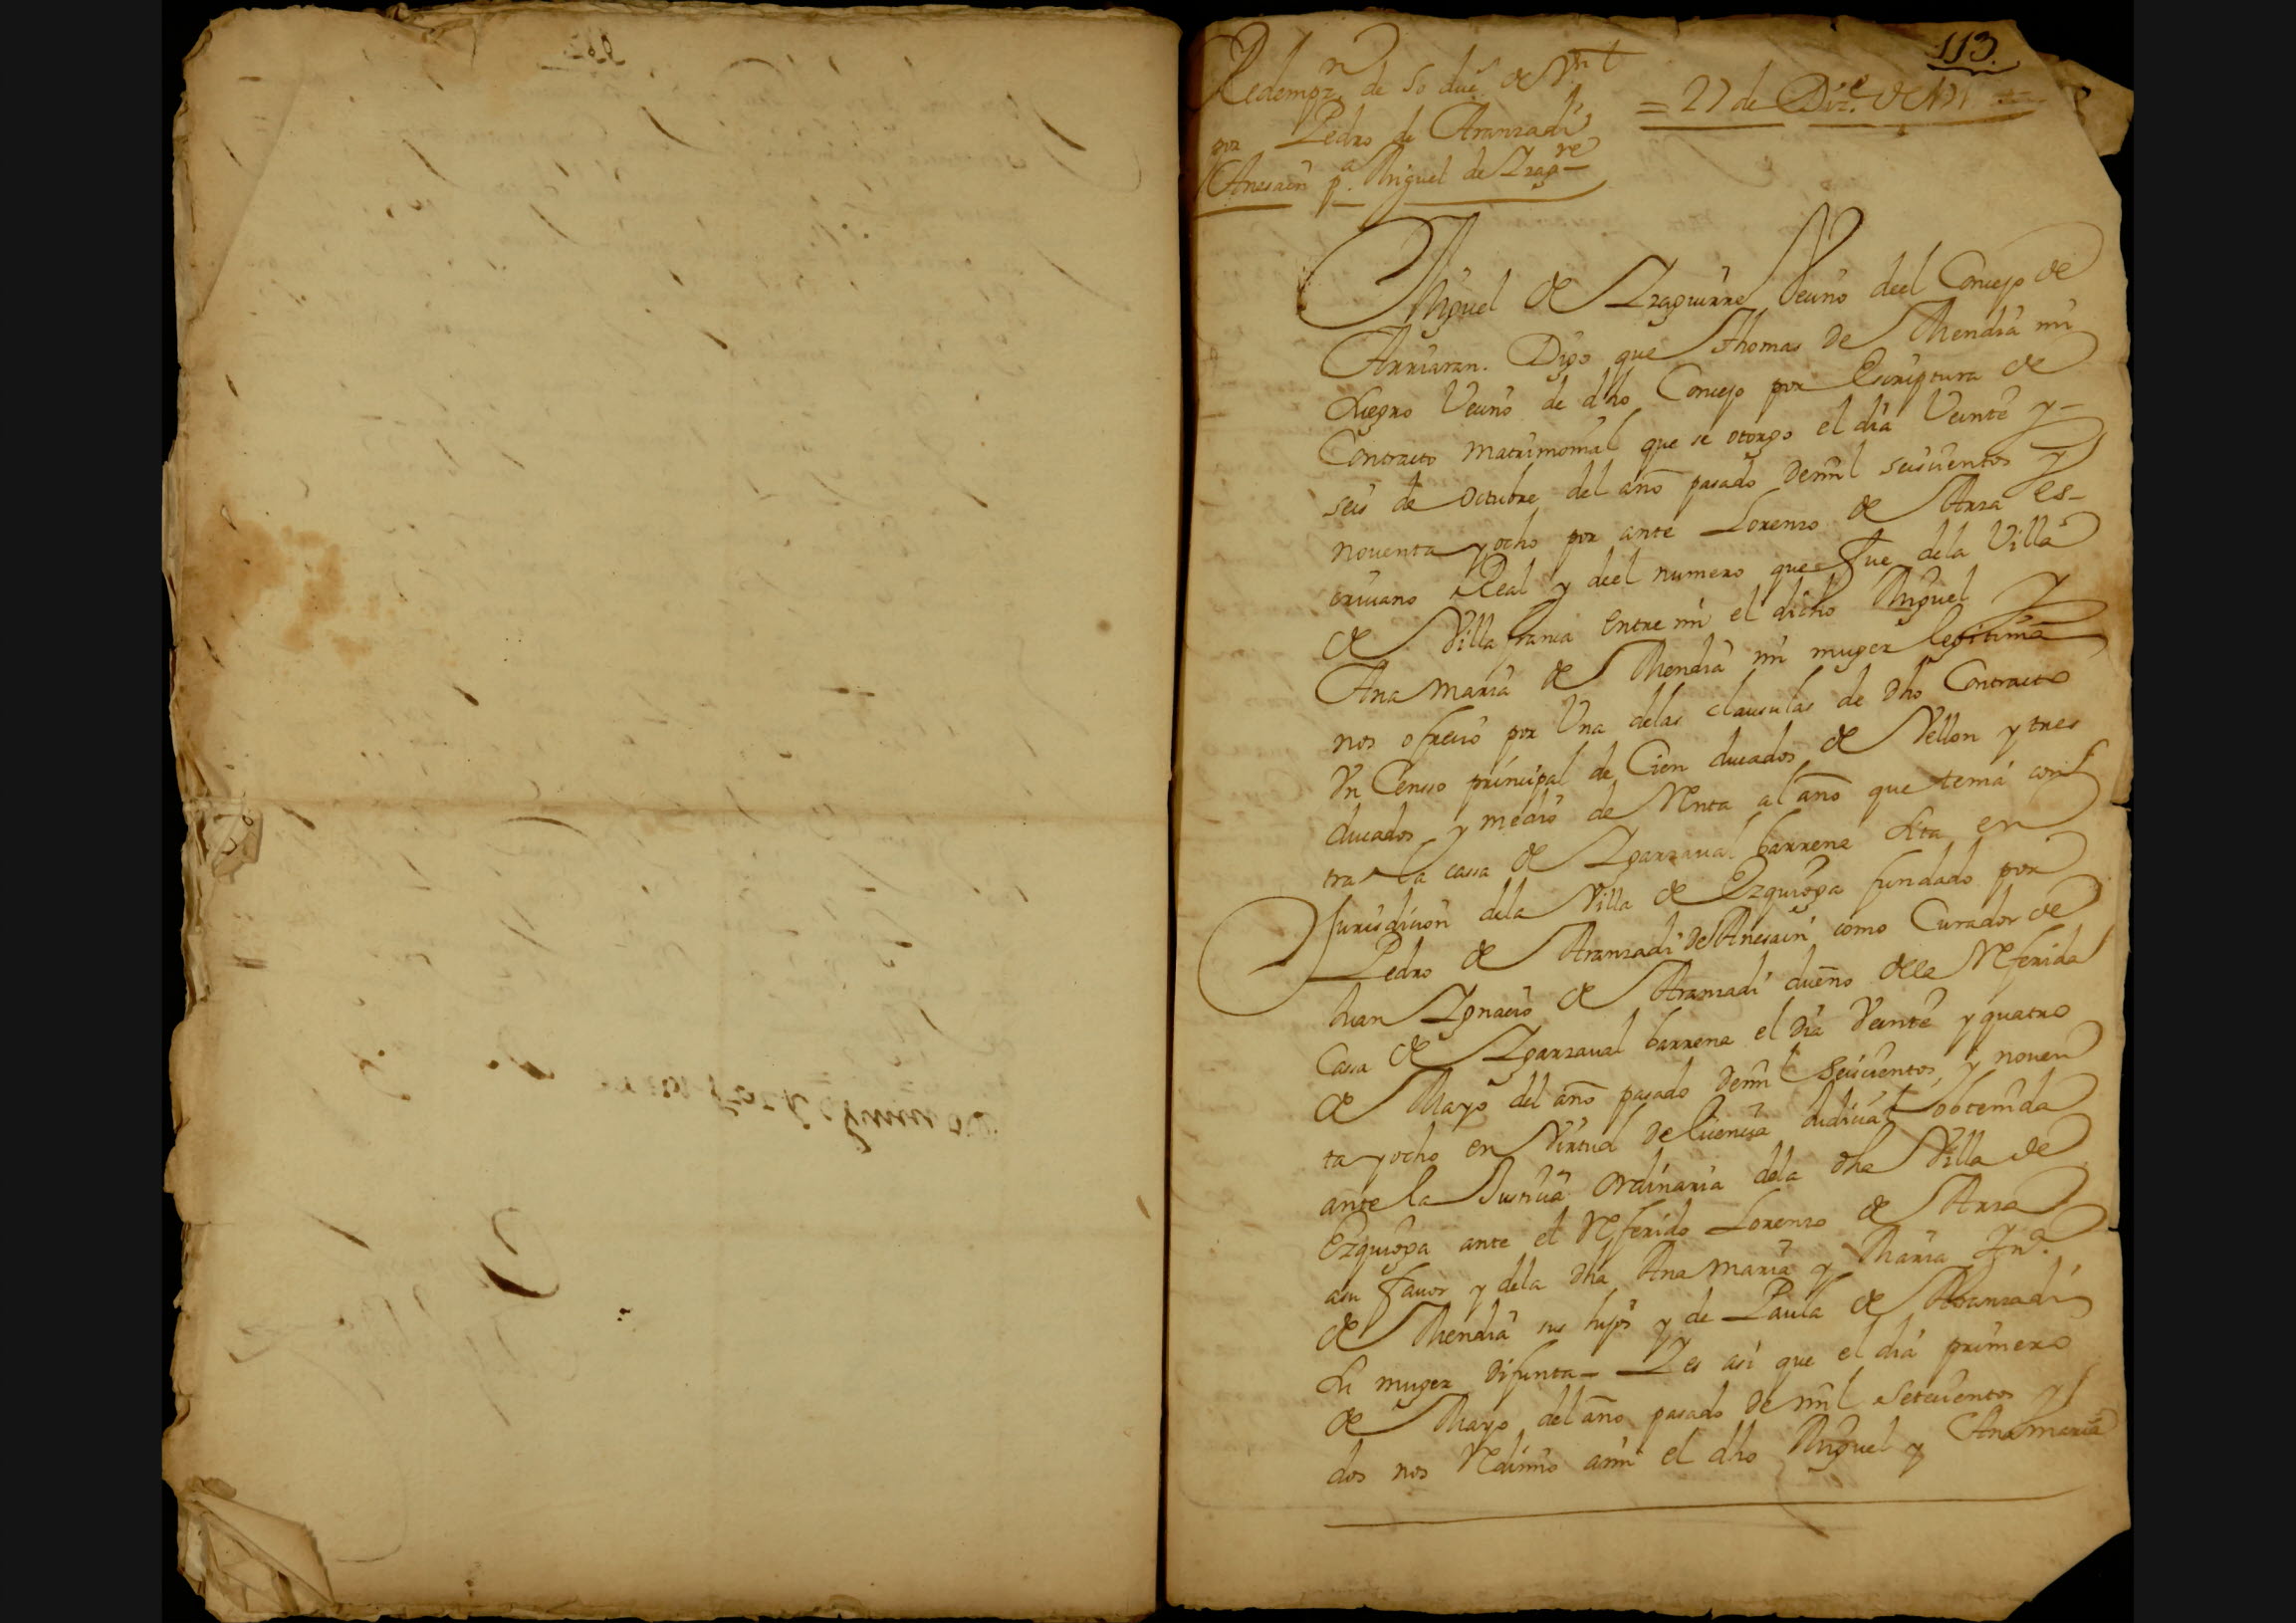 113.
Redempz.n de 50 duc.s de V.n
= 27 de Diz.e de
por Pedro de Aranzadi
Anesain p.a Miguel de Izag.re
Miguel de Izaguirre Vecino deel Concejo de
Arriaran. Digo que Thomas de Mendia mi
suegro Vecino de dho Concejo por Escriptura de
Contracto matrimonial que se otorgo el dia Veinte y
seis de Octubre del año pasado de mil seiscientos y
noventa y ocho por ante Lorenzo de Arza es-
crivano Real y deel numero que fue dela Villa
de Villafranca Entre mi el dicho Miguel y
Ana Maria de Mendia mi muger legitima
nos ofrecio por Una delas clausulas de dho Contracto
Un Censso principal de Cien ducados de Vellon y tres
ducados y medio de Renta al año que tenia con
tra la cassa de Igarzaval barrena sita en
Jurisdicion dela Villa de Ezquioga fundado por
Pedro de Aranzadi de Anesain como Curador de
Juan Ignacio de Aranzadi dueño dela Referida
Cassa de Igarzaval barrena el dia Veinte y quatro
de Mayo del año pasado de mil seiscientos y noven
ta y ocho en Virtud de licencia Judicial obtenida
ante la Justicia Ordinaria dela dha Villa de
Ezquioga ante el Referido Lorenzo de Arza
asu favor y dela dha Ana Maria y Maria Ju.a
de Mendia sus hijos y de Paula de Aranzadi
su muger difunta— Y es asi que el dia primero
de Mayo del año pasado de mil setecientos y
dos nos Redimio ami el dho Miguel y Ana Maria